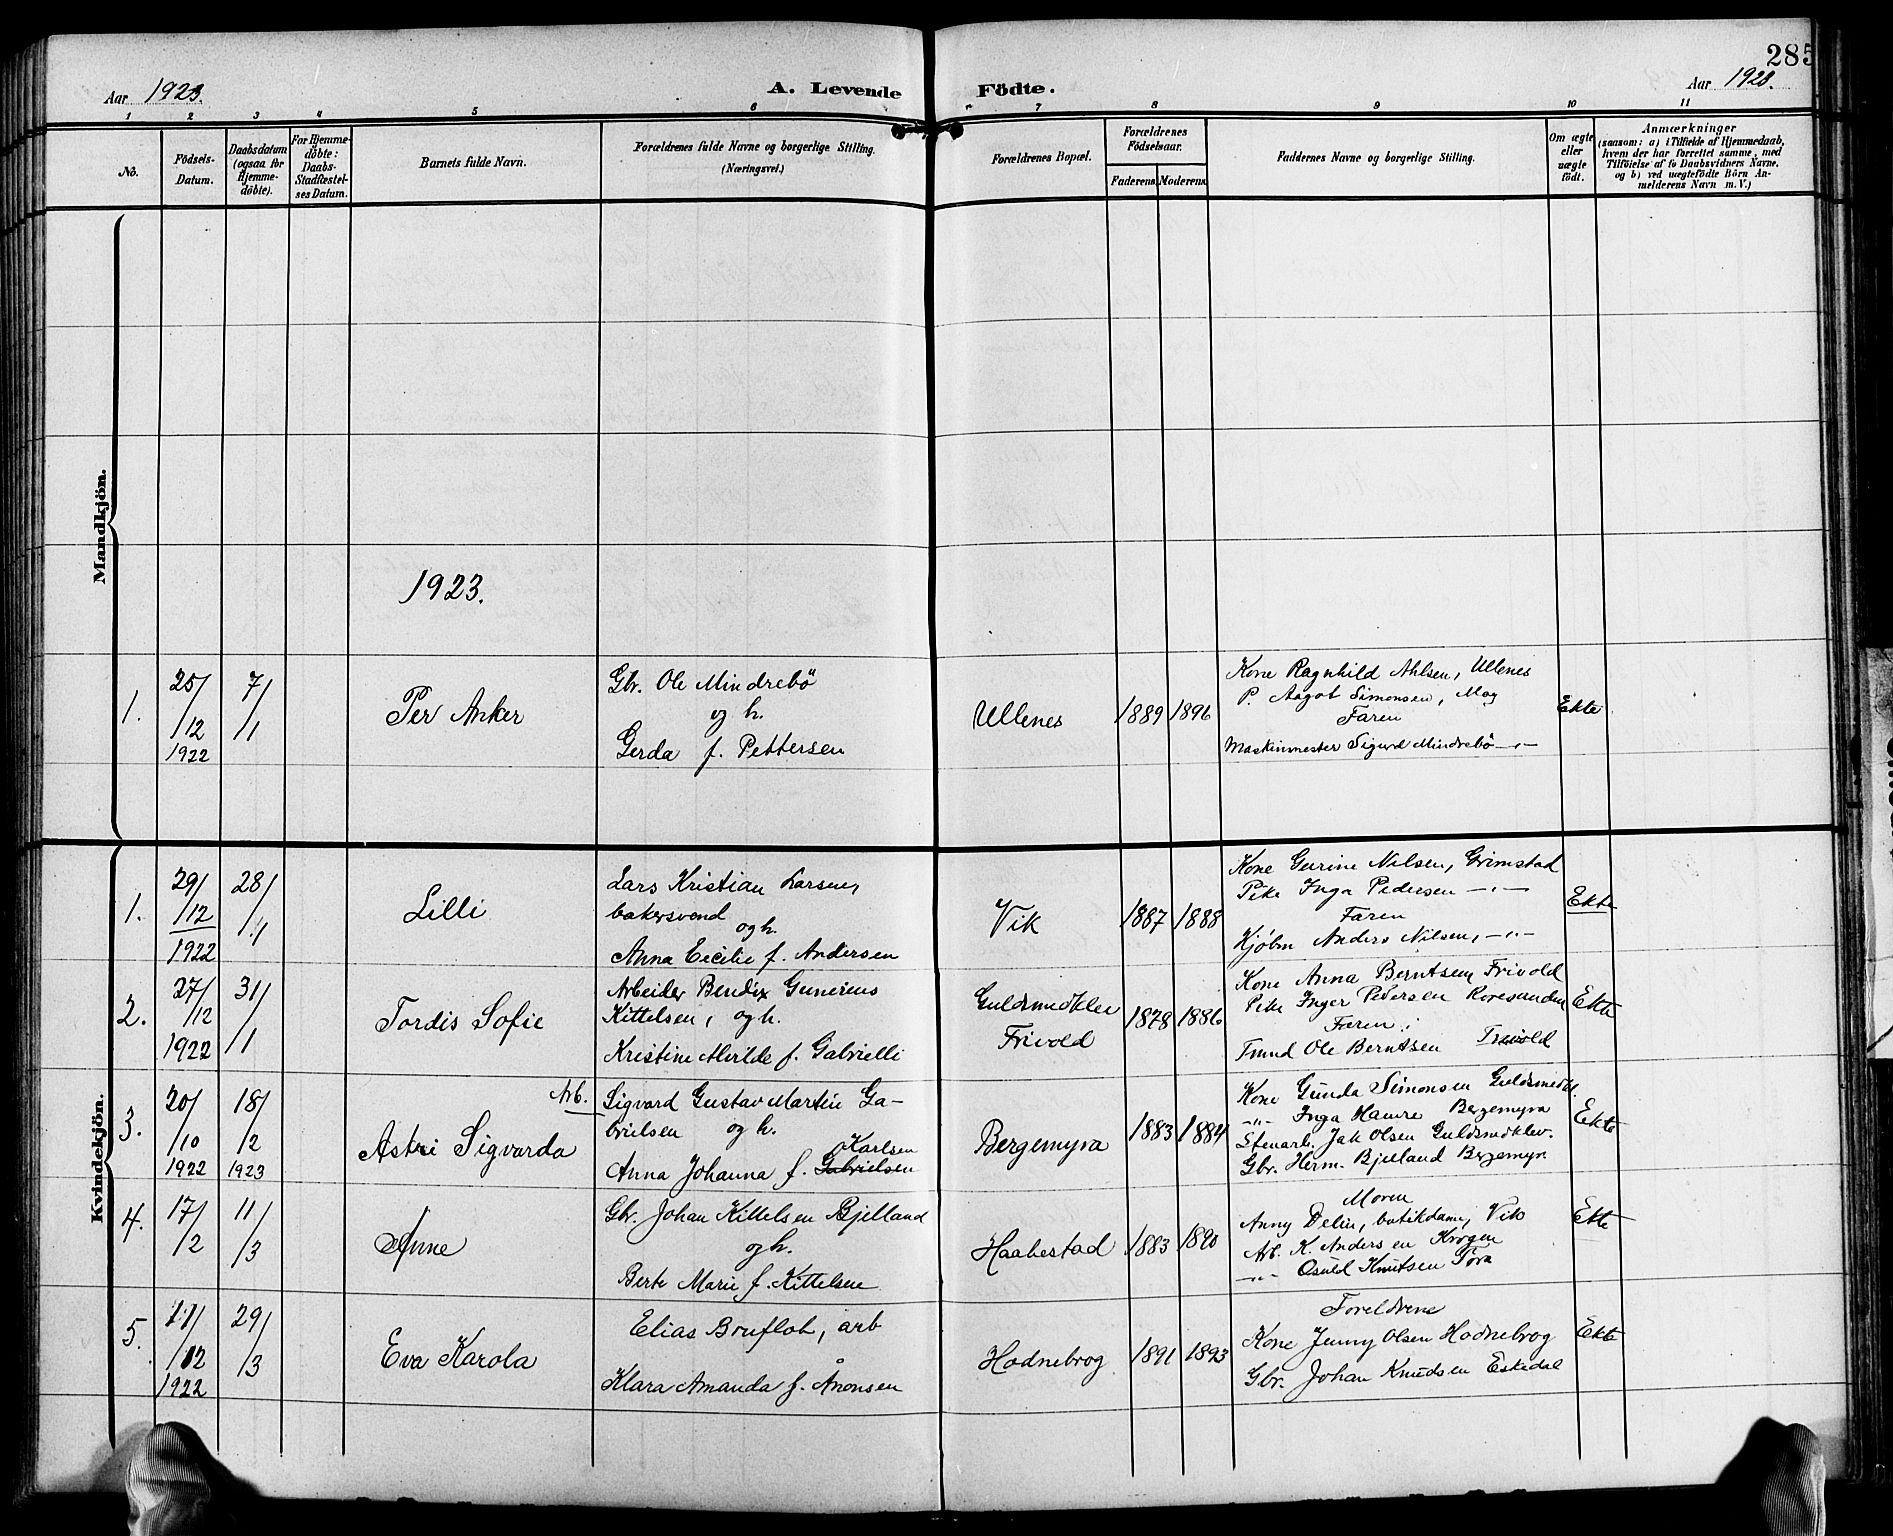 285
Aar 1923.
A. Levende Födte.
Aar 1923.
1 2 3 4 5 6 7 8 9 10 11
No.
Födsels-Datum.
Daabsdatum (ogsaa for Hjemme-döbte).
For Hjemme-döbte: Daabs-Stadfæstel-ses Datum.
Barnets fulde Navn.
Forældrenes fulde Navne og borgerlige Stilling.
(Næringsvei.)
Forældrenes Bopæl.
Forældrenes Födselsaar.
Faderens. Moderens.
Faddernes Navne og borgerlige Stilling.
Om ægte eller uægte födt.
Anmærkninger
(saasom: a) i Tilfælde af Hjemmedaab,
hvem der har forrettet samme, med
Tilföielse af to Daabsvidners Navne.
og b) ved uægtefödte Börn An-
melderens Navn m. V.)
Mandkjön.
1923.
1.
25/12 1922
7/1
Per Anker
Gbr. Ole Mindrebö
og h.
Gerda f. Pettersen
Ullenes
1889 1896
Kone Ragnhild Ahlsen, Ullenes
P. Aagot Simonsen, Moy
Faren
Maskinmester Sigurd Mindrebö —"—
Ekte
Kvindekjön.
1.
29/12 1922
28/1
Lilli
Lars Kristian Larsen,
bakersvend
og h.
Anna Cecilie f. Andersen
Vik
1887 1888
Kone Gurine Nilsen, Grimstad
Pike Inga Pedersen —"—
Faren
Kjöbm Anders Nilsen, —"—
Ekte
2.
27/12 1922
31/1
Tordis Sofie
Arbeider Bendix Gunerius
Kittelsen, og h.
Kristine Alvilde f. Gabrielli
Guldsmedklev
Frivold
1878 1886
Kone Anna Berntsen Frivold
Pike Inger Pedersen Roresanden
Faren:
Ole Berntsen Frivold
Ekte
3.
20/10 1922
18/2 1923
Astri Sigvarda
Arb. Sigvard Gustav Martin Ga-
brielsen og h.
Karlsen
Anna Johanna f. Gabrielsen
Bergemyra
1883 1884
Kone Gunda Simonsen Guldsmedkl.
—"— Inga Hamre Bergemyra
Stenarb. Jak Olsen Guldsmedklev.
Gbr. Herm. Bjelland Bergemyr
Ekte
4.
17/2
11/3
Anne
Gbr. Johan Kittelsen Bjelland
og h.
Berte Marie f. Kittelsen
Haabestad
1883 1890
Moren
Anny Delin, butikdame, Vik
Arb. K. Andersen Krogen
—"— Osuld Knutsen Fora
Ekte
5.
11/12 1922
29/3
Eva Karola
Elias Bruflot, arb
Klara Amanda f. Ånonsen
Hodnebrog
1891 1893
Foreldrene
Kone Jenny Olsen Hodnebrog
Gbr. Johan Knudsen Eskedal
Ekte